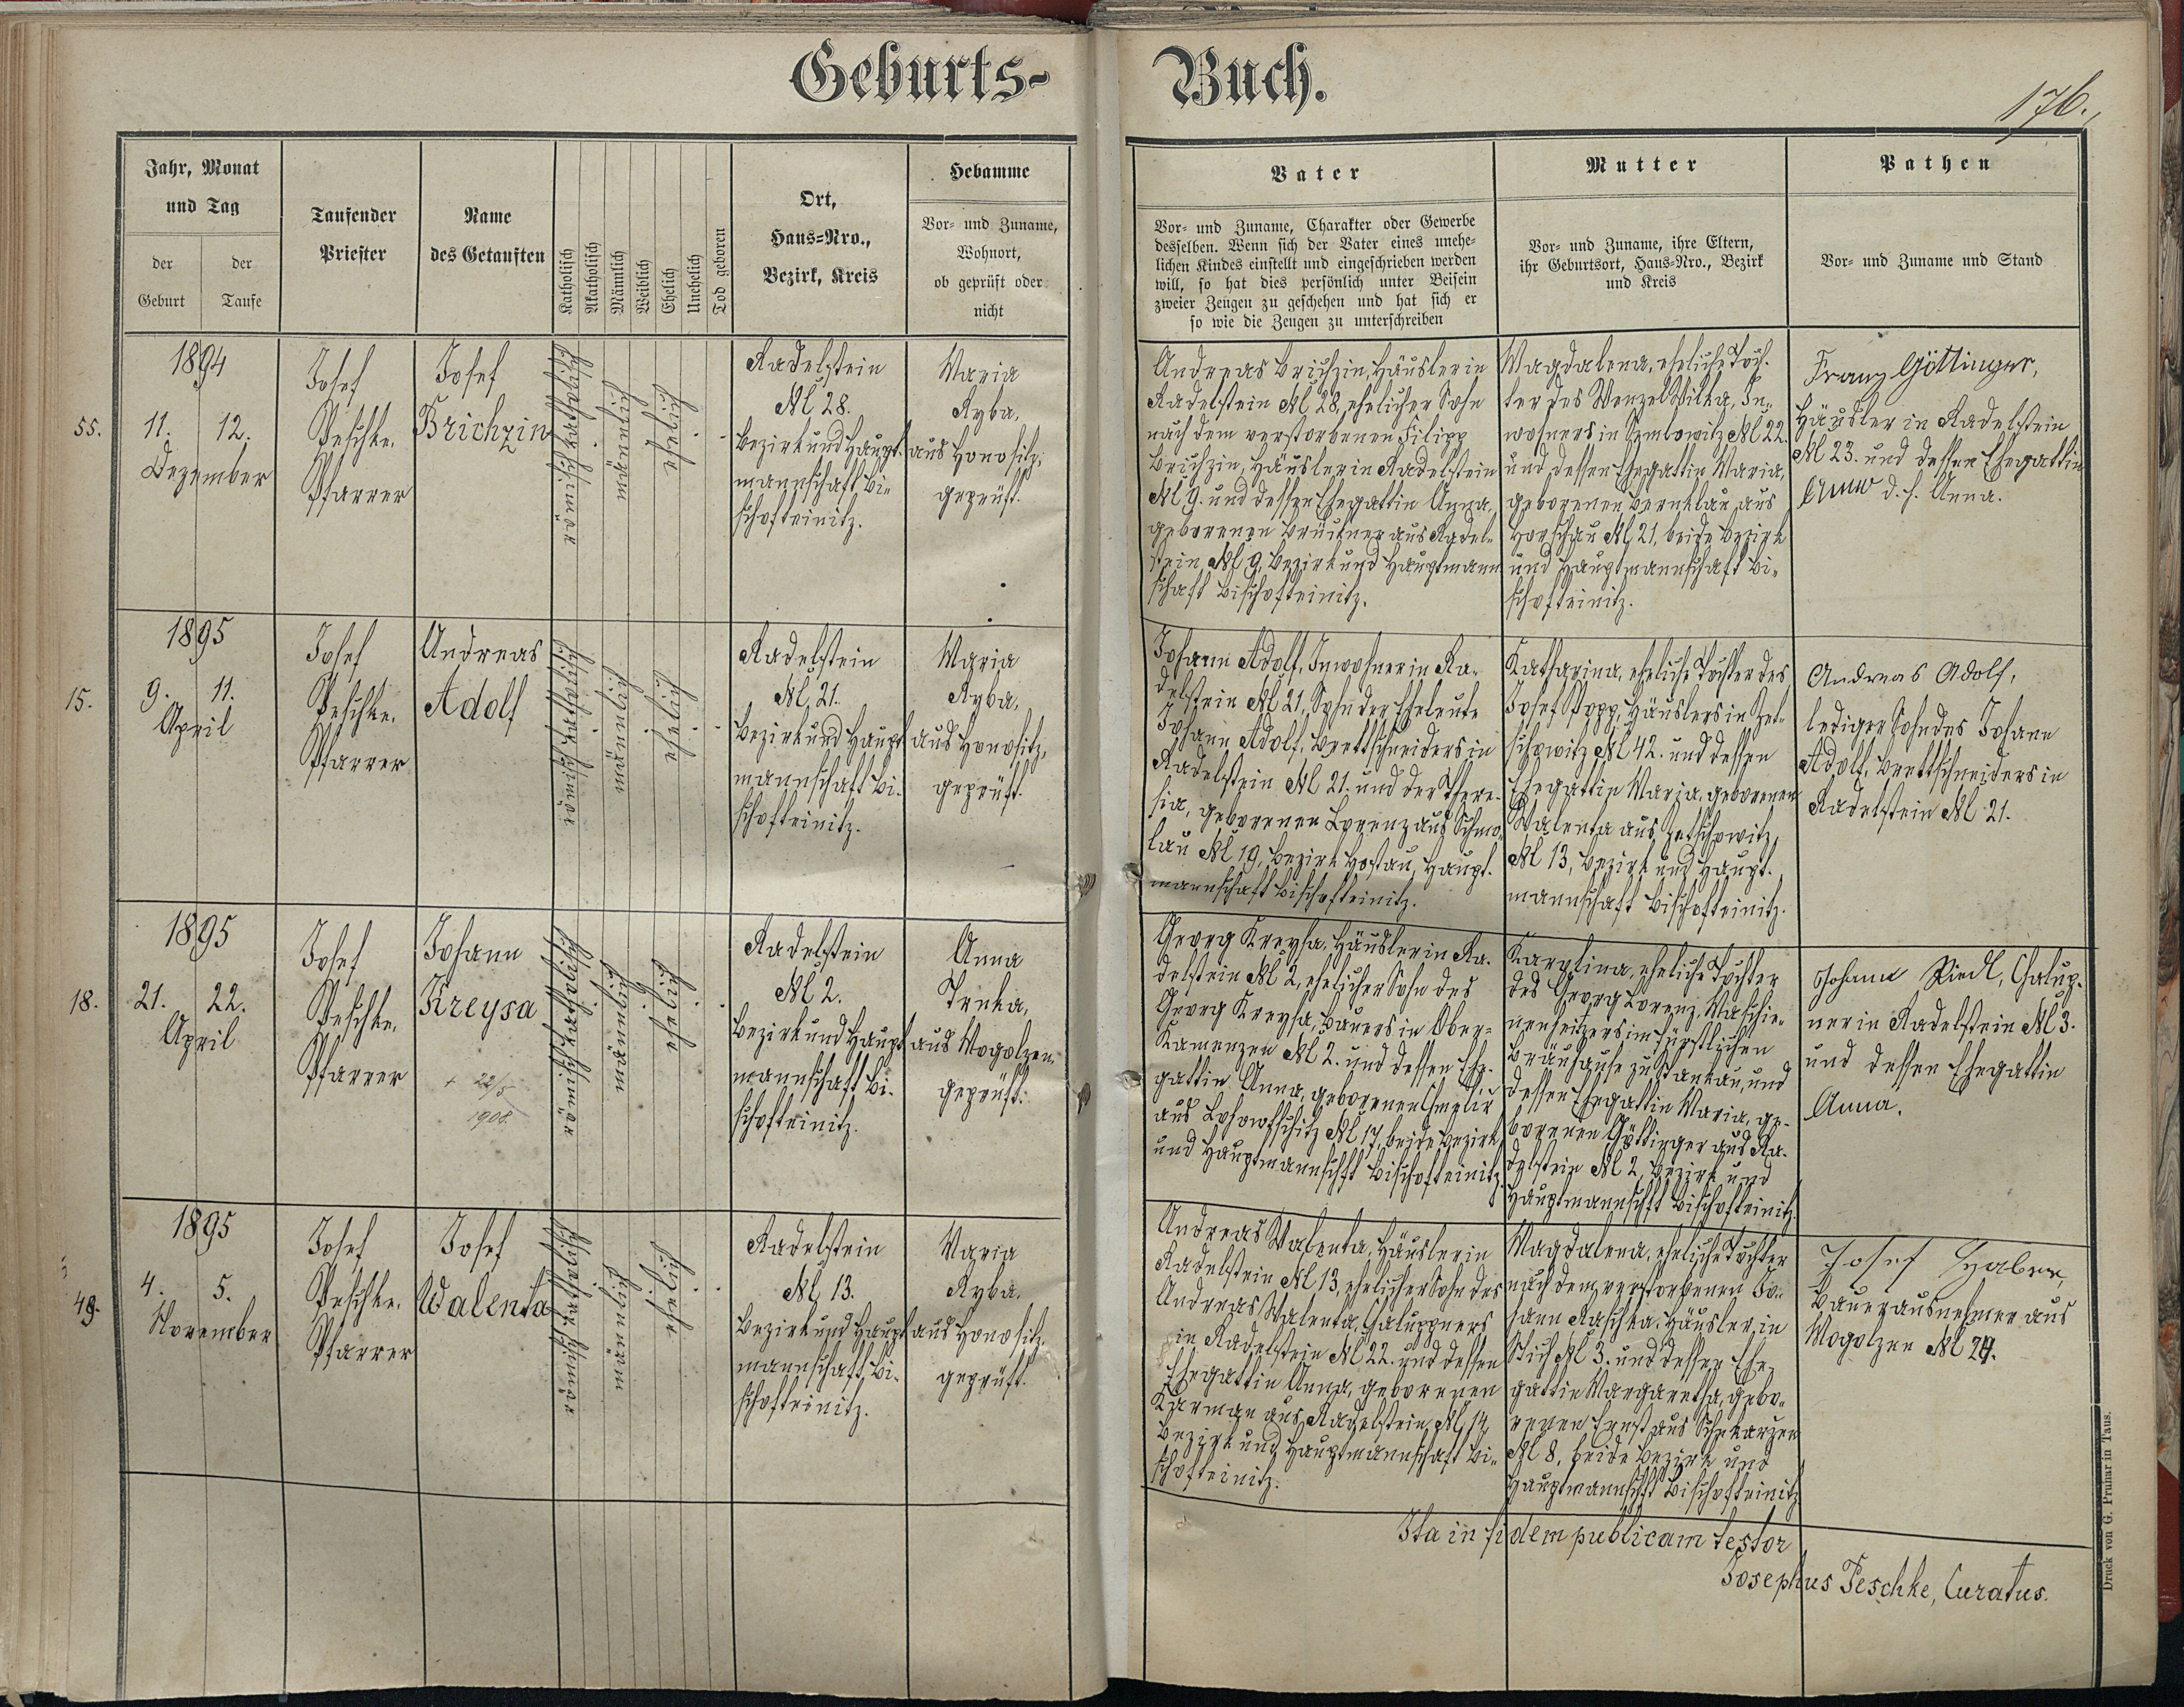 Geburts-
Buch.
176.
Jahr, Monat
und Tag
der
Geburt
der
Taufe
Taufender
Priester
Name
des Getauften
Katholisch
Akatholisch
Männlich
Weiblich
Ehelich
Unehelich
Tod geboren
Ort,
Haus-Nro.,
Bezirk, Kreis
Hebamme
Vor- und Zuname,
Wohnort,
ob geprüft oder
nicht
Vater
Vor- und Zuname, Charakter oder Gewerbe
desselben. Wenn sich der Vater eines unehe-
lichen Kindes einstellt und eingeschrieben werden
will, so hat dies persönlich unter Beisein
zweier Zeugen zu geschehen und hat sich er
so wie die Zeugen zu unterschreiben
Mutter
Vor- und Zuname, ihre Eltern,
ihr Geburtsort, Haus-Nro., Bezirk
und Kreis
Pathen
Vor- und Zuname und Stand
55.
1894
11. 12.
Dezember
Josef
Peschke,
Pfarrer
Josef
Brichzin
römischkatholisch
männlich
ehelich
Radelstein
№ 28.
Bezirk und Haupt-
mannschaft Bi-
schofteinitz.
Maria
Ryba,
aus Honositz,
geprüft.
Andreas Brichzin, Häusler in
Radelstein № 28, ehelicher Sohn
nach dem verstorbenen Filipp
Brichzin, Häusler in Radelstein
№ 9. und dessen Ehegattin Anna,
geborenen Brückner aus Radel-
stein № 9, Bezirk und Hauptmann
schaft Bischofteinitz.
Magdalena, eheliche Toch-
ter des Wenzel Wilka, In-
wohners in Semlowitz № 22.
und dessen Ehegattin Maria,
geborenen Bernklau, aus
Horschau № 21, beide Bezirk
und Hauptmannschaft Bi-
schofteinitz.
Franz Göttinger,
Häusler in Radelstein
№ 23. und dessen Ehegattin
Anna d. h. Anna.
15.
1895
9. 11.
April
Josef
Peschke,
Pfarrer
Andreas
Adolf
römischkatholisch
männlich
ehelich
Radelstein
№ 21.
Bezirk und Haupt
mannschaft Bi-
schofteinitz.
Maria
Ryba,
aus Honositz,
geprüft.
Johann Adolf, Inwohner in Ra-
delstein № 21, Sohn der Eheleute
Johann Adolf, Brettschneiders in
Radelstein № 21. und der There-
sia, geborenen Lorenz aus Schmo-
lau № 19, Bezirk Hostau, Haupt-
mannschaft Bischofteinitz.
Katharina, eheliche Tochter des
Josef Popp, Häuslers in Zet-
schowitz № 42. und dessen
Ehegattin Maria, geborenen
Walenta aus Zetschowitz,
№ 13, Bezirk und Haupt-
mannschaft Bischofteinitz.
Andreas Adolf,
lediger Sohn des Johann
Adolf, Brettschneiders in
Radelstein № 21.
18.
1895
21. 22.
April
Josef
Peschke,
Pfarrer
Johann
Kreysa
+ 22/5
1908.
römischkatholisch
männlich
ehelich
Radelstein
№ 2.
Bezirk und Haupt
mannschaft Bi-
schofteinitz.
Anna
Trnka,
aus Mogolzen
geprüft.
Georg Kreysa, Häusler in Ra-
delstein № 2, ehelicher Sohn des
Georg Kreysa, Bauers in Ober-
Kamenzen № 2. und dessen Ehe-
gattin Anna, geborenen
aus № 17, beide Bezirk
und Hauptmannschft Bischofteinitz.
Karolina, eheliche Tochter
des Georg Lorenz, Maschie-
nenheizers im fürstlichen
Bräuhause zu Stankau, und
dessen Ehegattin Maria, ge-
borenen Göttinger aus Ra-
delstein № 2, Bezirk und
Hauptmannschft Bischofteinitz.
Johann Riedl, Chalup-
ner in Radelstein № 3.
und dessen Ehegattin
Anna.
49.
1895
4. 5.
November
Josef
Peschke,
Pfarrer
Josef
Walenta
römischkatholisch
männlich
ehelich
Radelstein
№ 13.
Bezirk und Haupt
mannschaft Bi-
schofteinitz.
Maria
Ryba,
aus Honositz,
geprüft.
Andreas Walenta, Häusler in
Radelstein № 13, ehelicher Sohn des
Andreas Walenta, Chaluppners
in Radelstein № 22. und dessen
Ehegattin Anna, geborenen
Karman aus Radelstein № 14,
Bezirk und Hauptmannschaft Bi-
schofteinitz.
Magdalena, eheliche Tochter
nach dem verstorbenen Jo-
hann Raschka, Häusler in
Stich № 3. und dessen Ehe-
gattin Margaretha, gebo-
renen Ernst aus Schekarzen
№ 8, beide Bezirk und
Hauptmannschft Bischofteinitz
Josef
Bauerausnehmer aus
Mogolzen № 24.
Ita in fidem publicam testor
Josephus Peschke, Curatus.
Druck von G. Prunar in Taus.